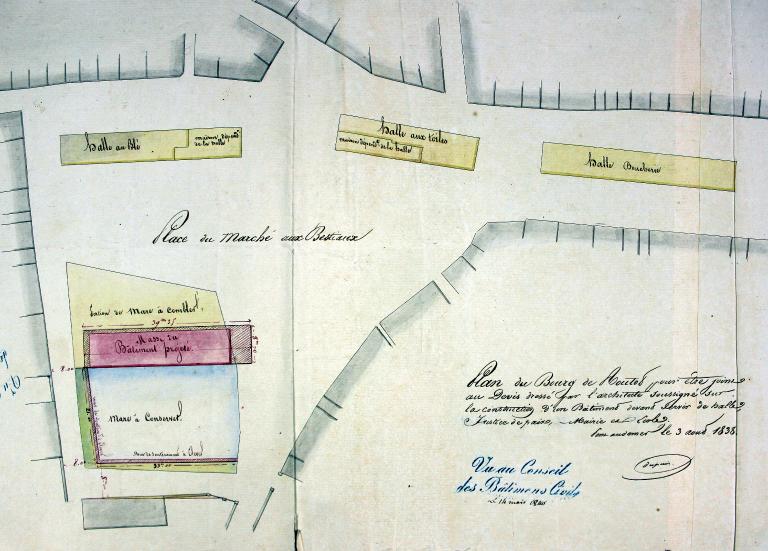 halle au blé
maison dépend.te
de la halle
halle aux toiles
maison dépend.te de la halle
halle Boucherie
Place du Marché aux Bestiaux
Mare à Combler
39.m 25
Masse du
Bâtiment projeté
Mare à Conserver
Mur de soutènement à
Plan du Bourg de Routot pour être joint
au Devis dressé par l'architecte soussigné sur
la construction d'un Bâtiment devant servir de halle
Justice de paix, Mairie et Ecole.
Pont audemer le 3 août 1838
Vu au Conseil
des Bâtimens Civils
Le 14 mars 1840